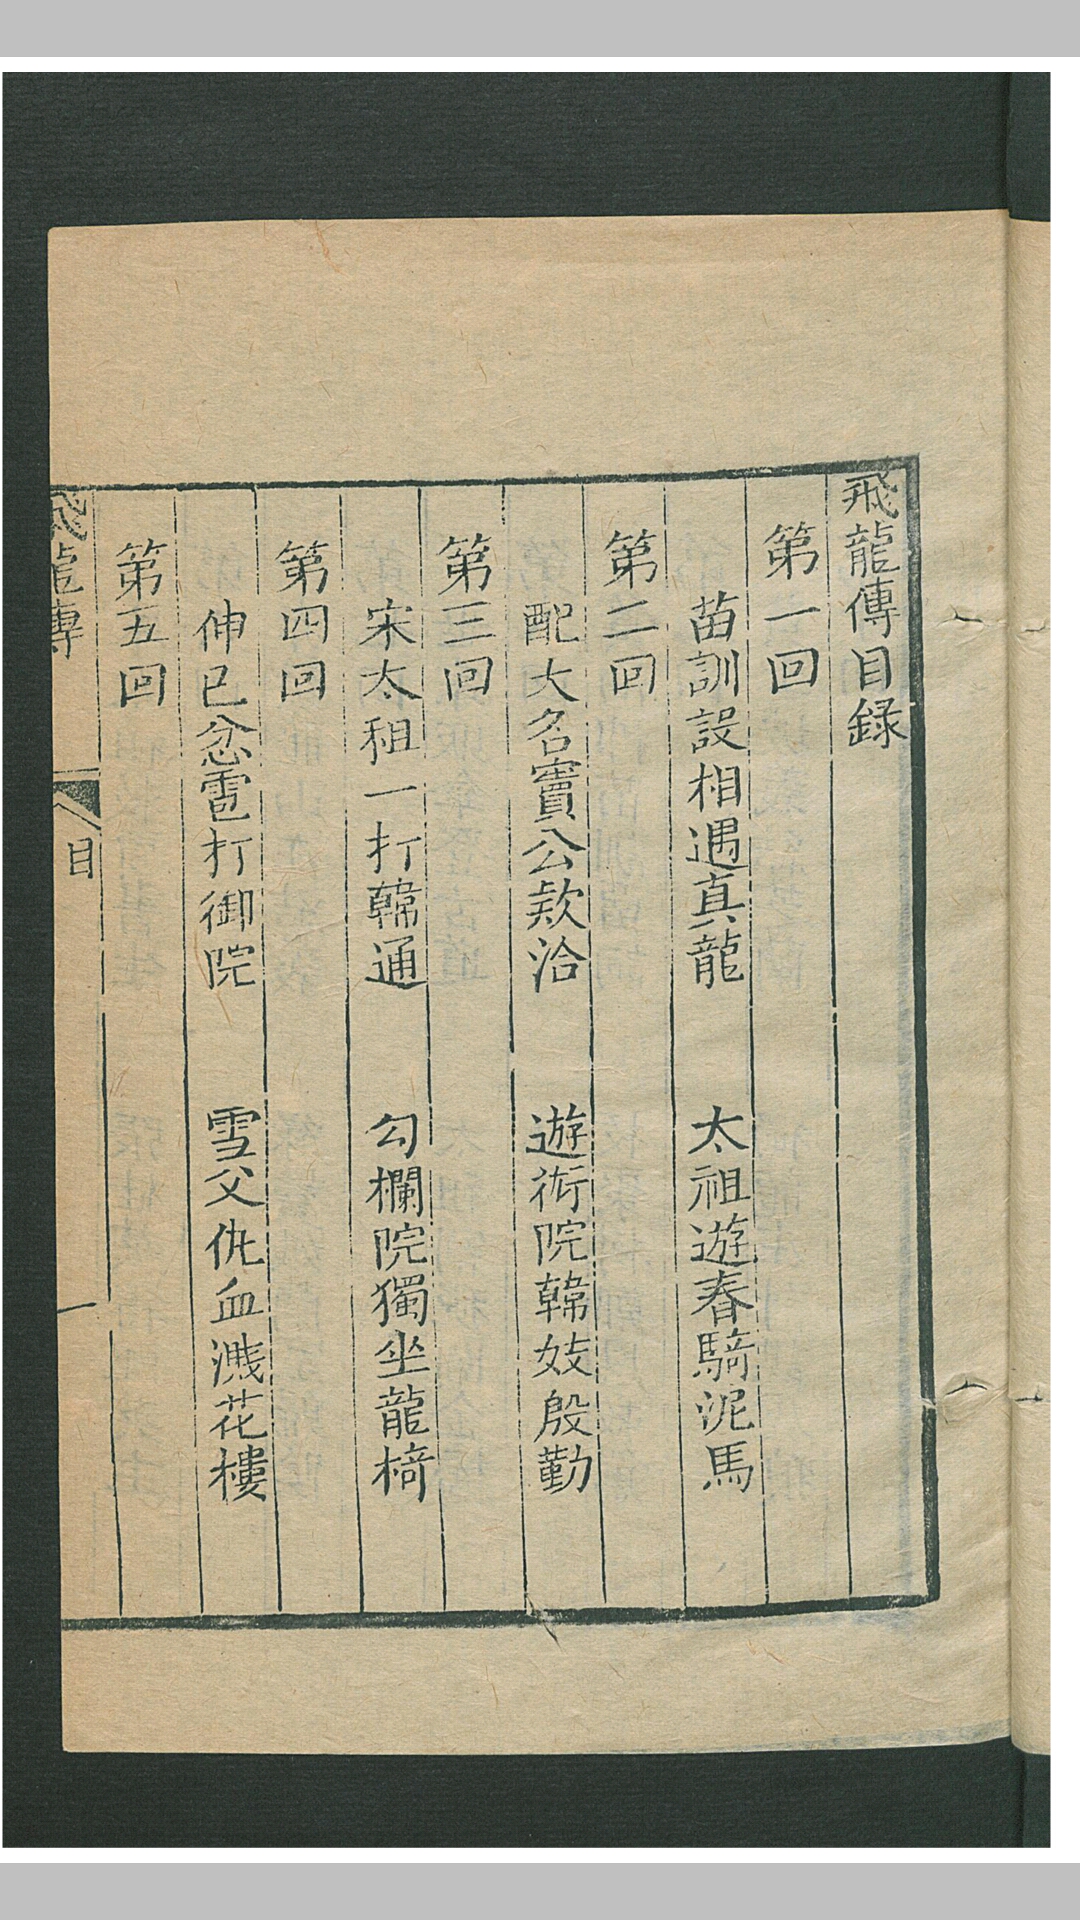 飛龍傳目録
第一回
苗訓設相遇真龍　太祖遊春騎泥馬
第二回
配大名竇公款洽　遊術院韓妓殷勤
第三回
宋太祖一打韓通　勾欄院獨坐龍椅
第四回
伸已忿雹打御院　雪父仇血濺花樓
第五回
飛龍傳　目　一